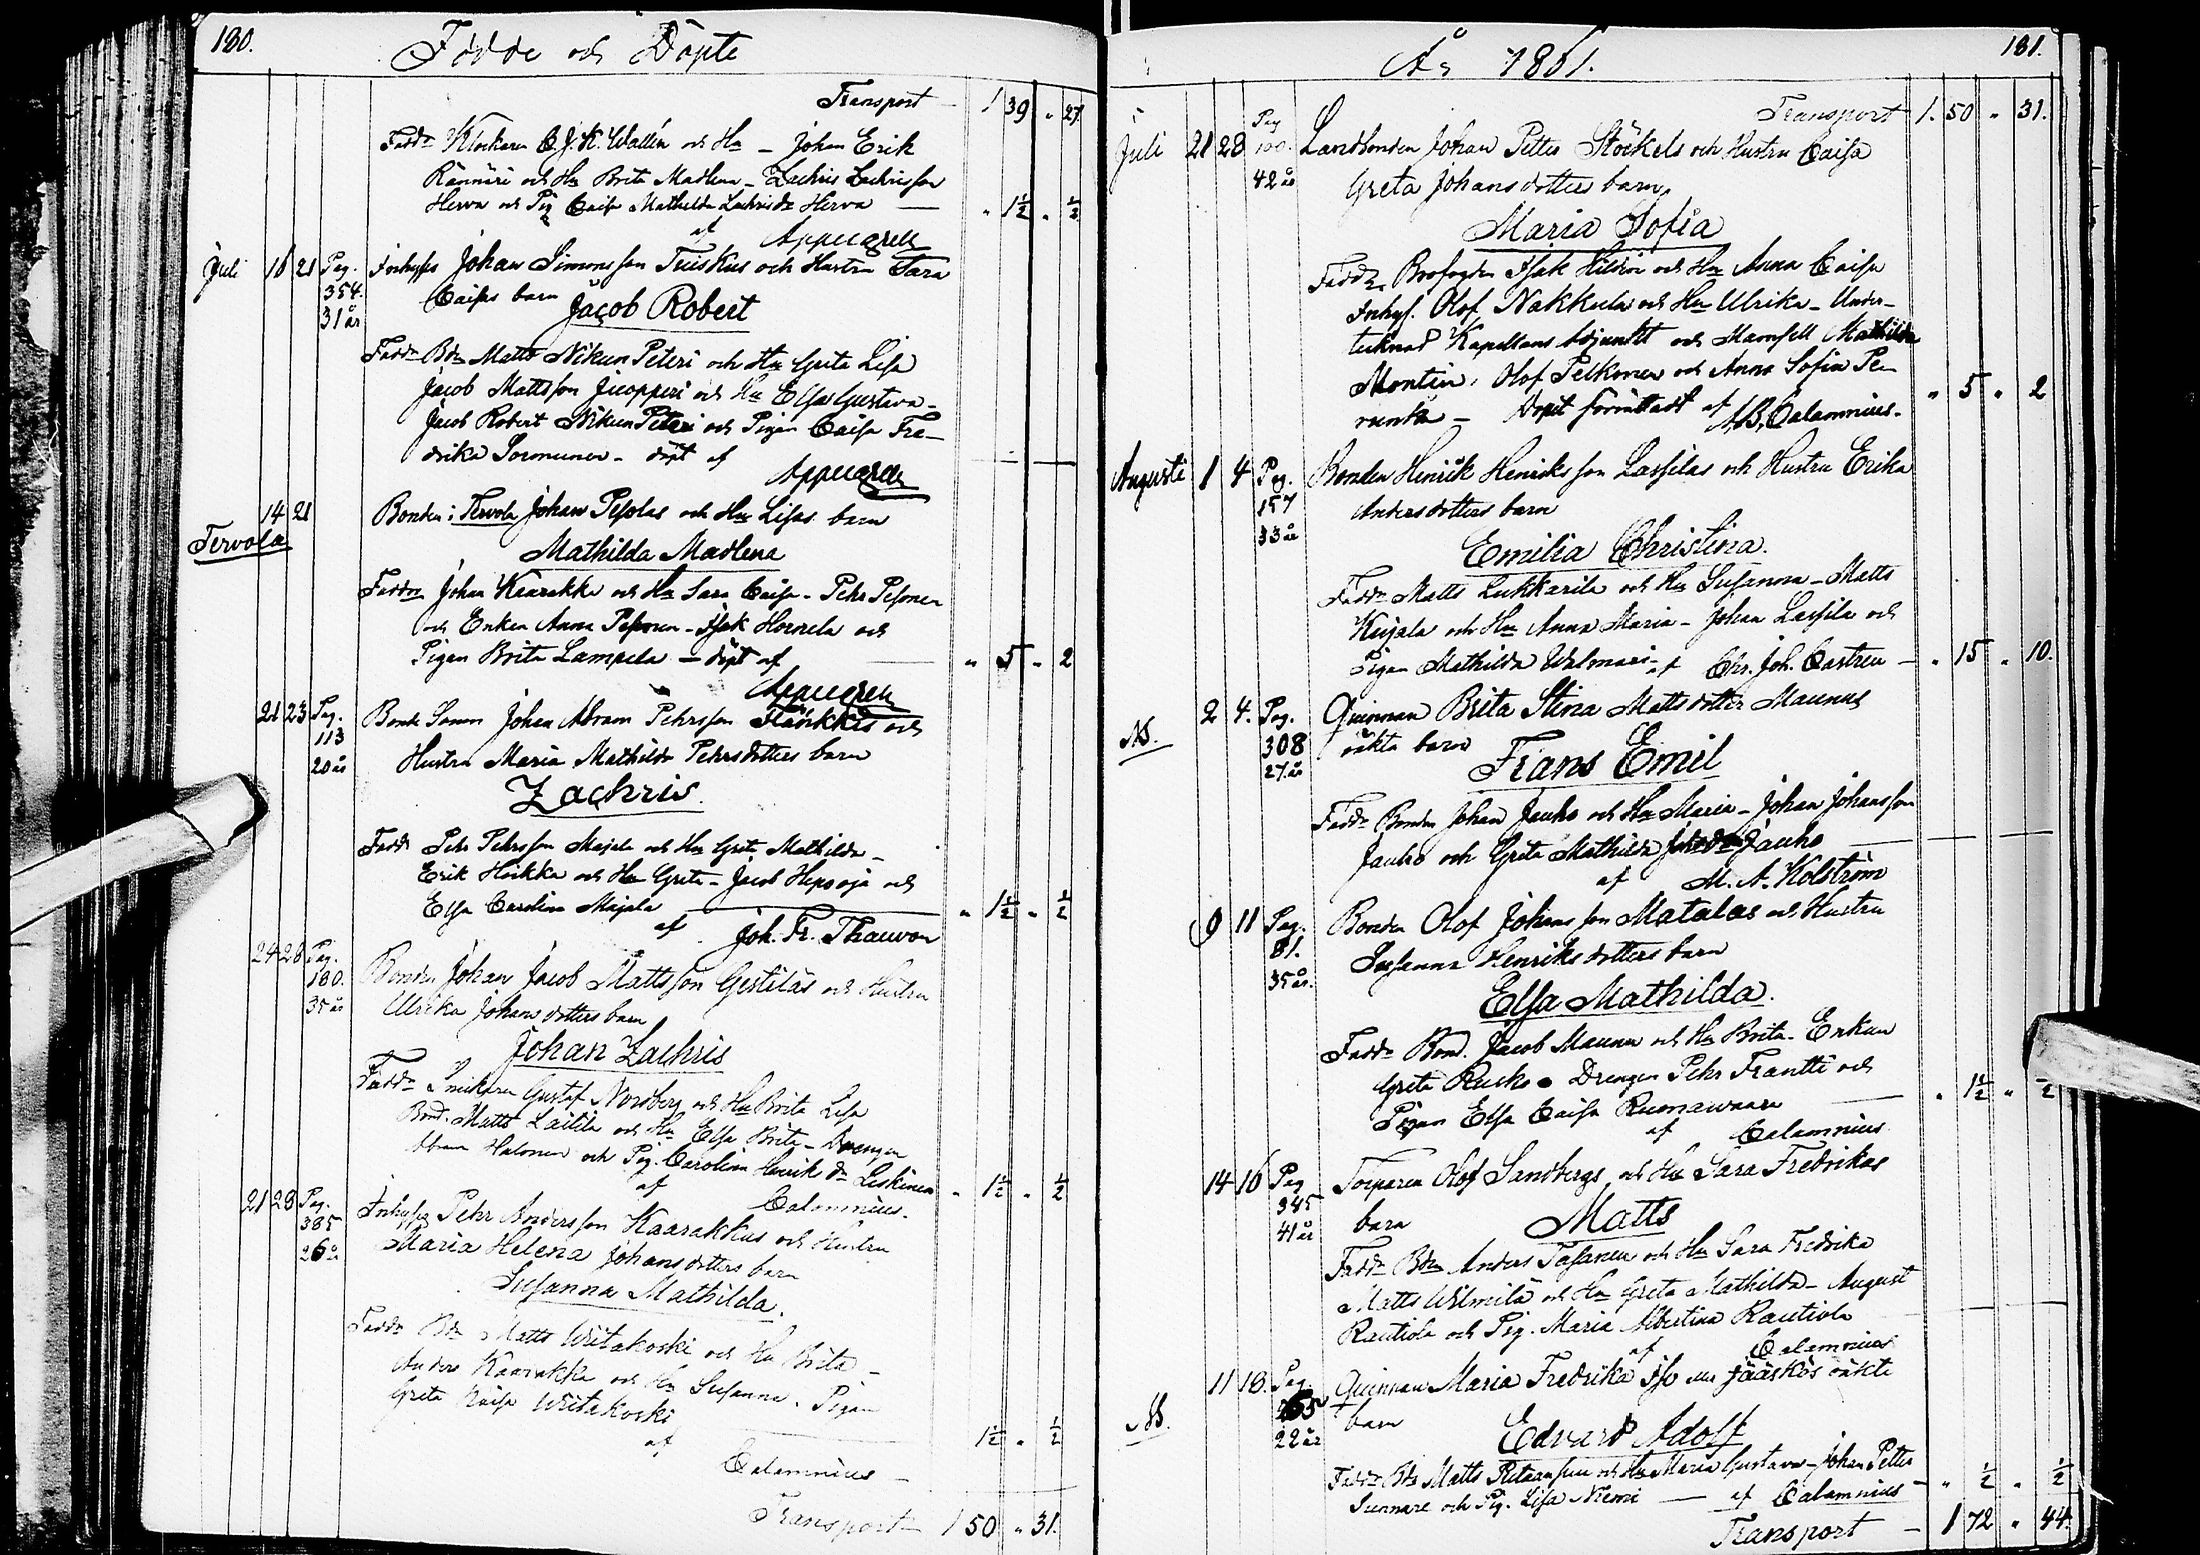 180.
Födde och Döpte
Transport 1 39 " 27
Fadd: Klockaren C. J. K. Wallén och Hu – Johan Erik
och Hu Brita Madlena – Zachris Zachrisson
Herva och Pig Caisa Mathilda Zachrisdr Herva " 1½ " ½
af Appelgren
Juli 16 21 Pag. Inhyses Johan Simonsson och Hustru Sara
354. Caisas barn
31 år Jacob Robert
Fadd: Bdn Matts Nikun Peteri och Hu Greta Lisa
Jacob Mattsson Juopperi och Hu Elsa Gustava –
Jacob Robert Nikun Peteri och Pigan Caisa Fre-
drika Sormunen – döpt af
Appelgren
14 21 Bonden i Tervola Johan Pesolas och Hu Lisas barn
Tervola
Mathilda Madlena
Faddr Johan Kaarakka och Hu Sara Caisa – Pehr Pesonen
och Enkan Anna Pesonen – Isak Hornela och
Pigan Brita Lampela – döpt af " 5 " 2
Appelgren
21 23 Pag. Bonde Sonen Johan Abram Pehrsson och
113 Hustru Maria Mathilda Pehrsdotters barn
20 år Zachris
Fadd Pehr Pehrsson Majala och Hu Greta Mathilda –
Erik Hoikka och Hu Greta – Jacob Heposoja och
Elsa Carolina Majala " 1½ " ½
af Joh. Fr. Thauvon
24 28 Pag. Bonden Johan Jacob Mattsson Gestiläs och Hustru
180. Ulrika Johansdotters barn
35 år Johan Zachris
Fadd: Snickaren Gustaf Nordberg och Hu Brita Lisa
Bond. Matts Laitila och Hu Elsa Brita – Drengen
Abram Halonen och Pig. Carolina Henriksdr Leskinen " 1½ " ½
af Calamnius.
21 28 Pag. Inhyses Pehr Andersson Kaarakkas och Hustru
385 Maria Helena Johansdotters barn
26 år Susanna Mathilda.
Fadd: Bdn Matts Witakoski och Hu Brita –
Anders Kaarakka och Hu Susanna – Pigan
Greta Kaisa Witakoski 1½ " ½
af
Calamnius –
Transport 1 50 " 31.
181.
År 1861.
Transport 1. 50 " 31.
Juli 21 28 Pag 100. Landbonden Johan Petter Stöckels och Hustru Caisa
42 år Greta Johansdotters barn
Maria Sofia
Faddr Brofogden Isak Hildén och Hu Anna Caisa
Inhys. Olof Nakkula och Hu Ulrika – Under-
tecknad Kapellans Adjunkt och Mamsell Mathilda
Montin, Olof Pelkonen och Anna Sofia Pe-
runka – Dopet förrättadt af A.B. Calamnius. " 5 " 2
Augusti 1 4 Pag. Bonden Henrik Henriksson Lassilas och Hustru Erika
157 Andersdotters barn
33 år
Emilia Christina.
Fadd: Matts Lukkarila och Hu Susanna – Matts
Kujala och Hu Anna Maria – Johan Lassila och
Pigan Mathilda Walmari – af Chr. Joh. Castren – " 15 " 10.
2 4. Pag. Quinnan Brita Stina Mattsdotter Maunus
308 oäkta barn
27 år Frans Emil
Fadd: Bonden Johan Jauho och Hu Maria – Johan Johansson
Jauho och Greta Mathilda Jauho
af M. A. Holström
9 11 Pag. Bonden Olof Johansson Matalas och Hustru
81. Susanna Henriksdotters barn
35 år. Elsa Mathilda.
Fadd: Bond. Jacob Maunu och Hu Brita. Enkan
Greta Ruoko – Drengen Pehr Frantti och
Pigan Elsa Caisa Rumawaara " 1½ " ½
af Calamnius
14 16 Pag Torparen Olof Sandbergs och Hu Sara Fredrikas
345 barn
41 år Matts
Fadd: Bdn Anders Tapanen och Hu Sara Fredrika
Matts Wilmilä och Hu Greta Mathilda – August
Rautiola och Pig. Maria Albertina Rautiola
af Calamnius
11 18. Pag. Quinnan Maria Fredrika Jääskös oäkta
barn
22 år Edvard Adolf
Fadd: Bdn Matts och Hu Maria Gustava – Johan Petter
Sunnare och Pig. Lisa Niemi — af Calamnius – " ½ " ½
Transport – 1 72 " 44.